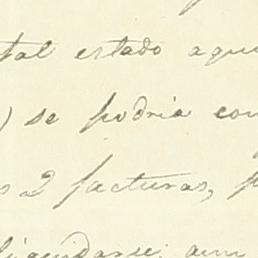 tal estado aqu
) se podria con
s 2 facturas, p
liquidarse; aun